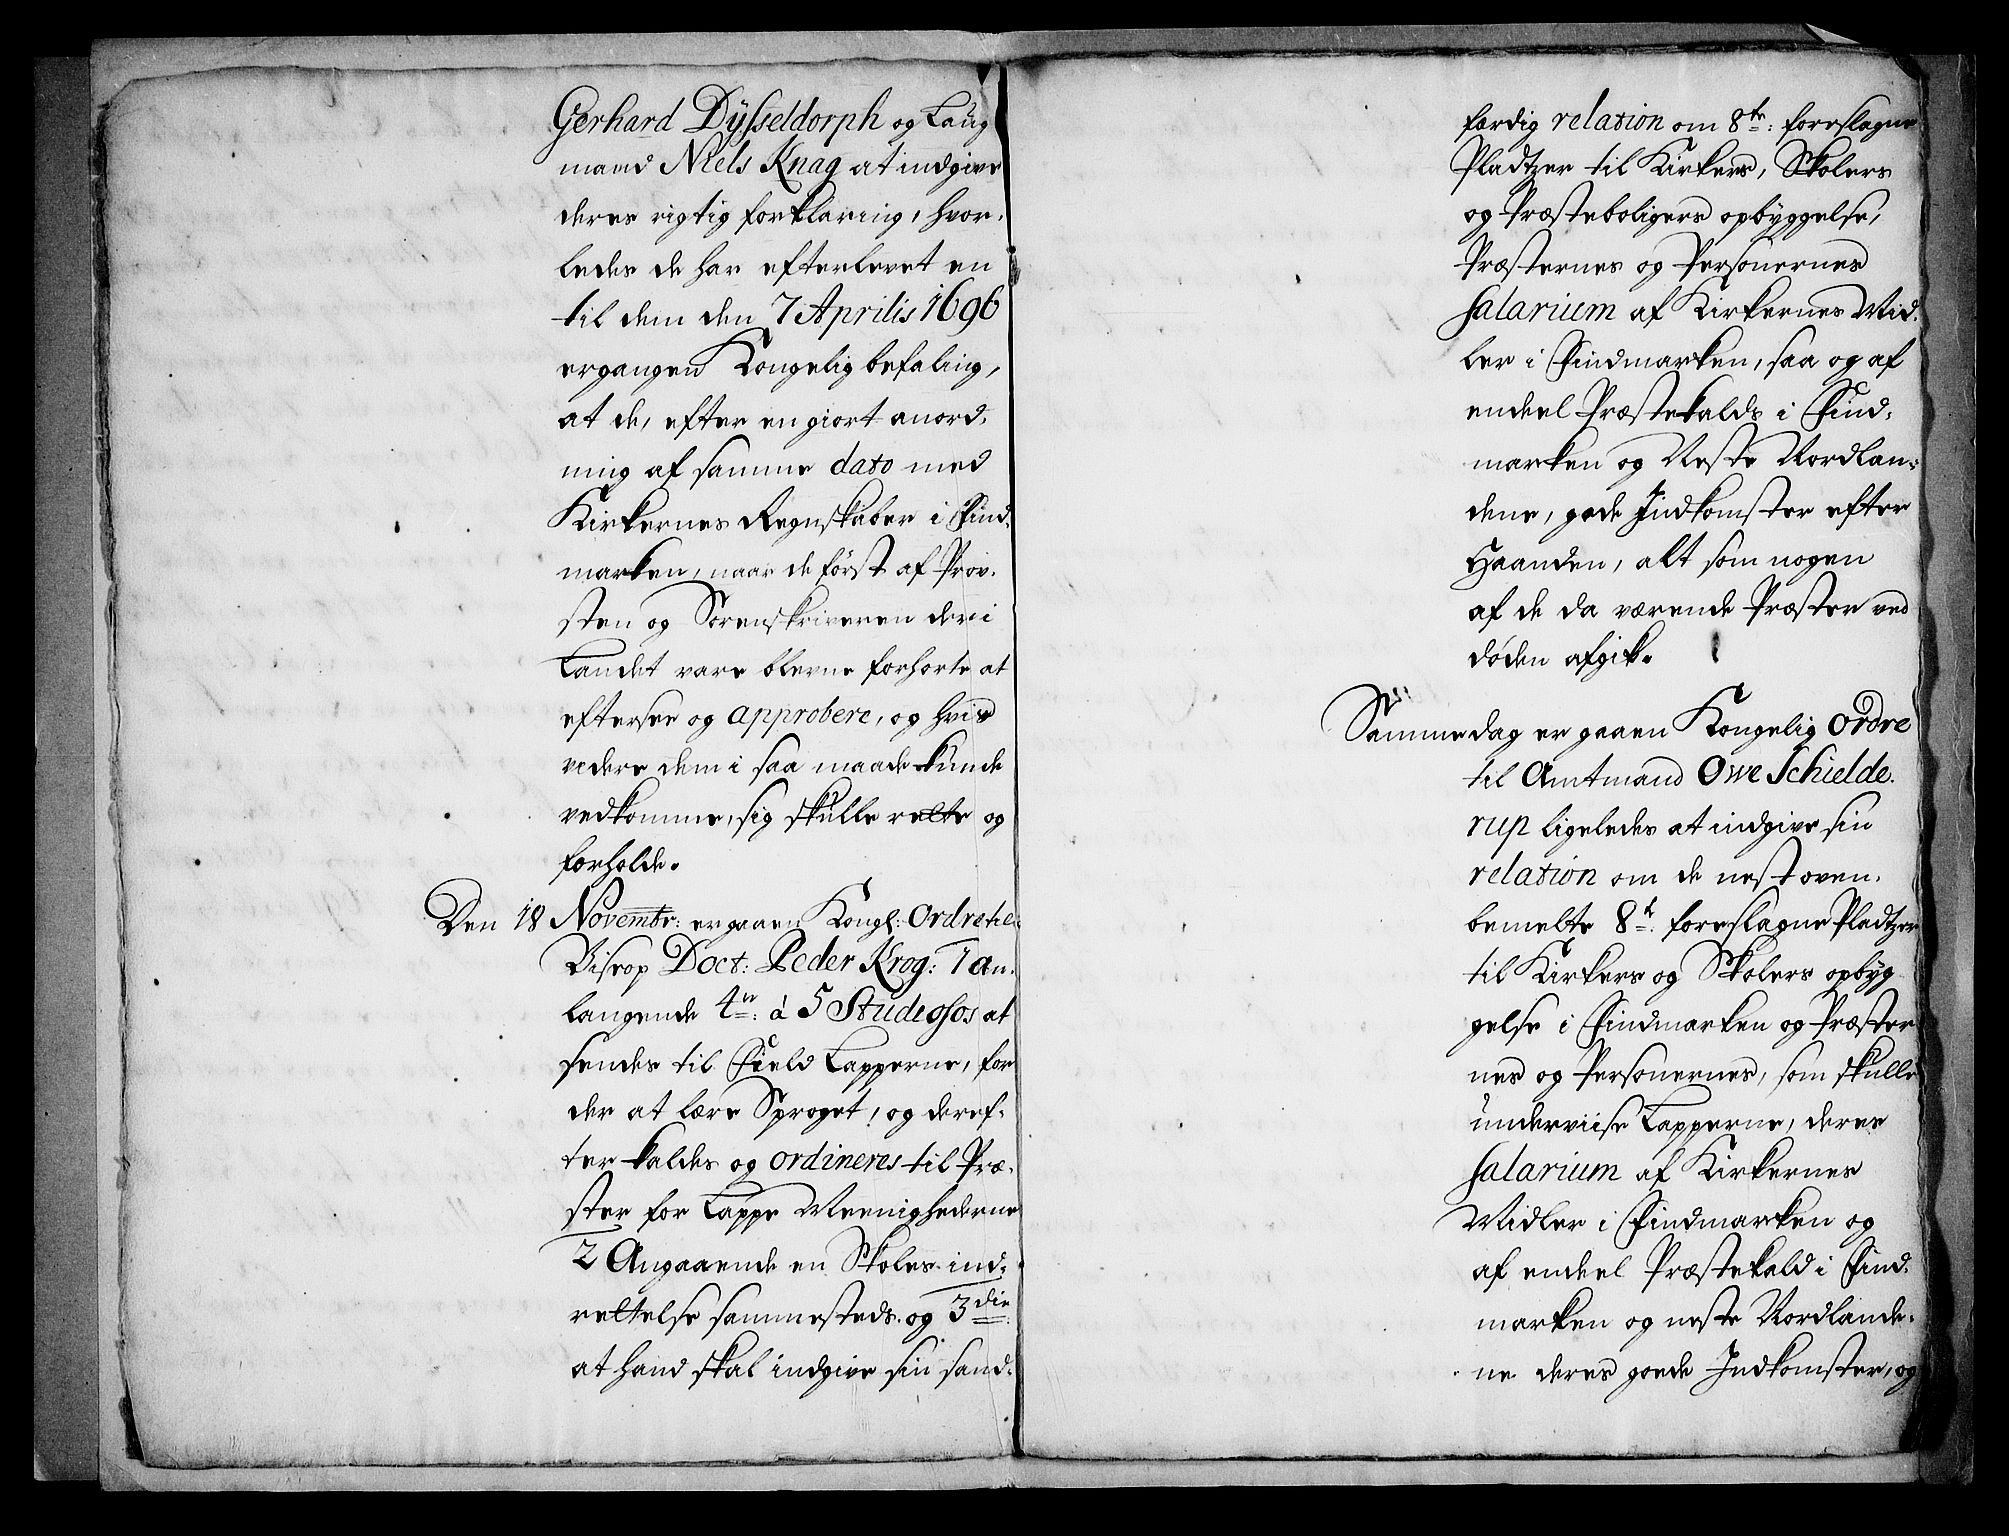 Gerhard Dÿsseldorph og Laug
mand Niels Knag at indgive
deres rigtig forklaring, hvor-
ledes de har efterlevet en
til dem den 7 Aprilis 1696
ergangen Kongelig befaling,
at de, efter en giort anord-
ning af samme dato med
Kirkernes Regnskaber i Find-
marken, naar de först af Prov-
sten og Sorenskriveren der i
Landet vare blevne forhorte at
eftersee og approbere, og hvis
videre dem i saa maade kunde
vedkomme, sig skulle rette og
forholde.
Den 18 Novembr: ergaaen Kongl: Ordre til
Biscop Doct: Peder Krog: 1 an-
langende 4re: à 5 Studiosos at
sendes til Field Lapperne, for
der at lære Sproget, og deref-
ter kaldes og ordineres til Præ-
ster for Lappe Meenighederne
2 Angaaende en Skoles ind-
rettelse sammesteds. og 3die
at hand skal indgive sin sand-
færdig relation om 8te: foreslagne
Pladtzer til Kirkers, Skolers
og Præsteboligers opbyggelse,
Præsternes og Personernes
Salarium af Kirkernes Mid-
ler i Findmarken, saa og af
endeel Præstekalds i Find-
marken og Neste Nordlan-
dene, gode Indkomster efter
Haanden, alt som nogen
af de da værende Præster ved
döden afgik.
Samme dag er gaaen Kongelig Ordre
til Amtmand Owe Schielde-
rup ligeledes at indgive sin
relation om de nest oven-
bemelte 8te: foreslagne Pladtzer
til Kirkers og Skolers opbyg
gelse i Findmarken og Præster
nes og Personernes, som skulle
underviise Lapperne, deres
Salarium af Kirkernes
Midler i Findmarken og
af endeel Præstekald i Find-
marken og neste Nordlande-
ne deres goede Indkomster, og